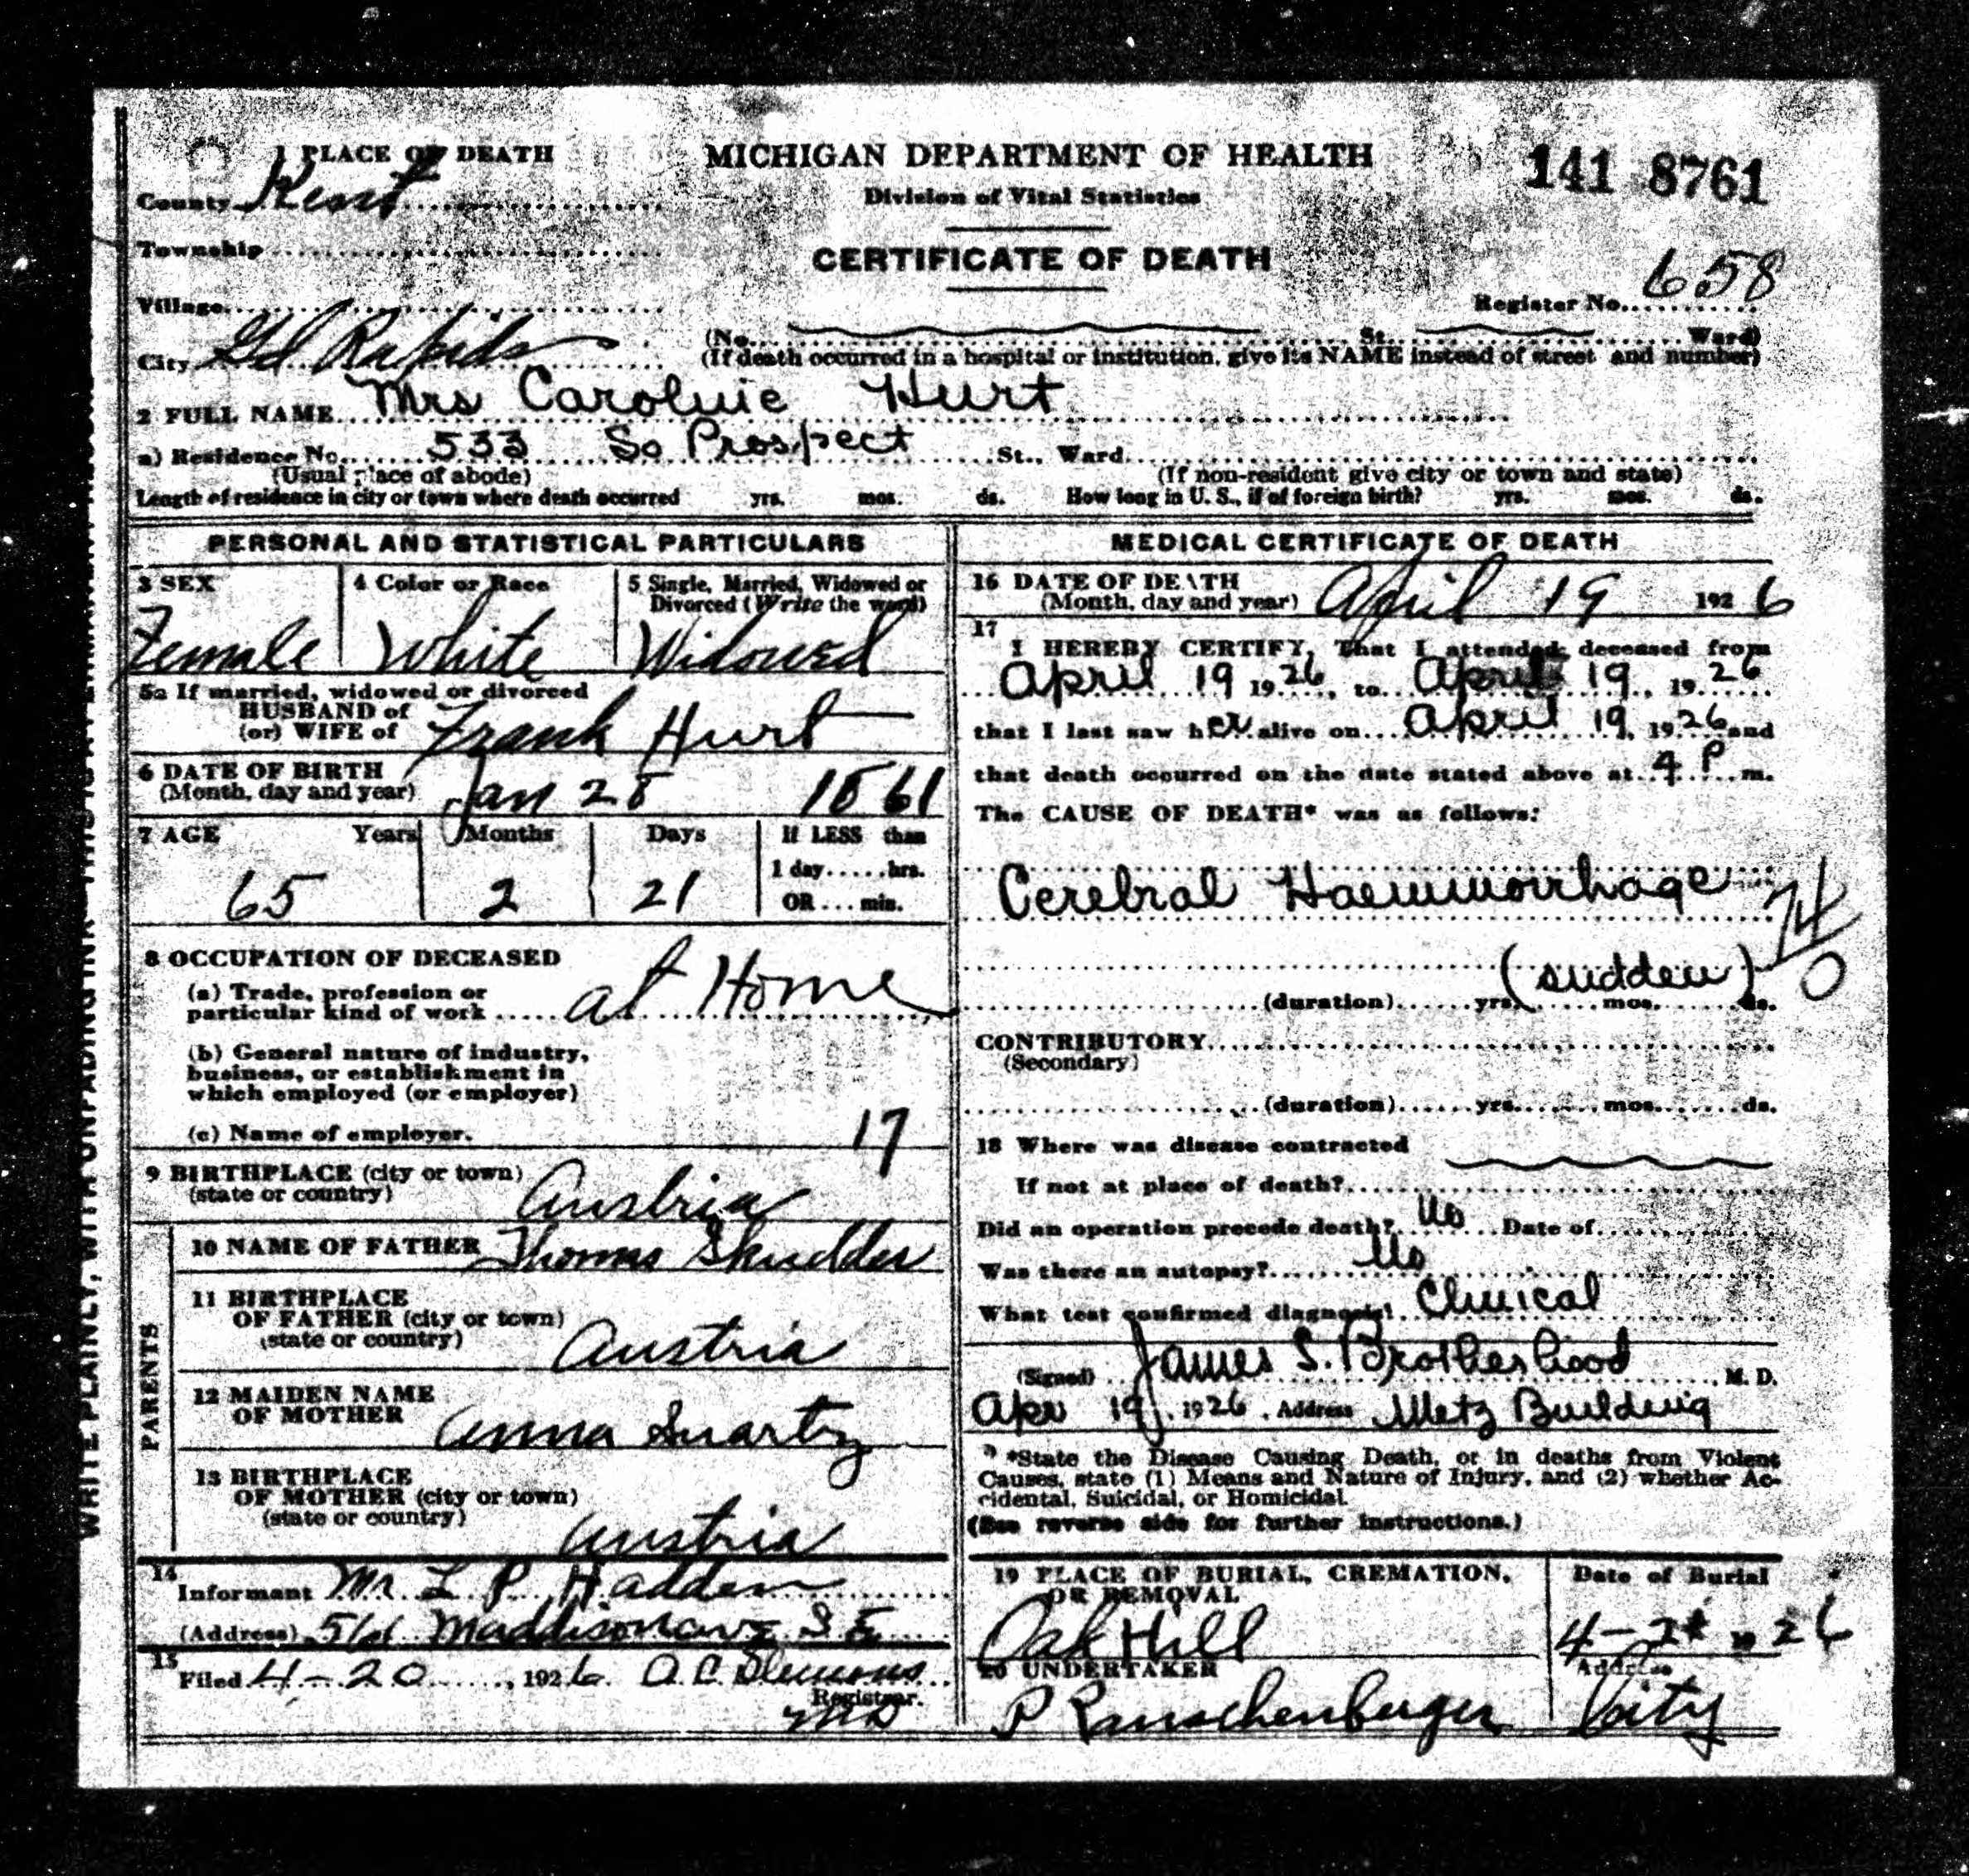 1 PLACE OF DEATH
MICHIGAN DEPARTMENT OF HEALTH
141 8761
County Kent
Division of Vital Statistics
Township
CERTIFICATE OF DEATH
658
Village
Register No.
City Gd Rapids (No. St. Ward)
(If death occurred in a hospital or institution, give its NAME instead of street and number)
2 FULL NAME Mrs Caroline Hurt
a) Residence No. 533 So Prospect St., Ward
(Usual place of abode) (If non-resident give city or town and state)
Length of residence in city or town where death occurred yrs. mos. ds. How long in U. S., if of foreign birth? yrs. mos. ds.
PERSONAL AND STATISTICAL PARTICULARS
3 SEX 4 Color or Race 5 Single, Married, Widowed or
Divorced (Write the word)
Female White Widowed
5a If married, widowed or divorced
HUSBAND of
(or) WIFE of Frank Hurt
6 DATE OF BIRTH
(Month, day and year) Jan 28 1861
7 AGE Years Months Days If LESS than
1 day.....hrs.
65 2 21 OR...min.
8 OCCUPATION OF DECEASED
(a) Trade, profession or
particular kind of work at Home
(b) General nature of industry,
business, or establishment in
which employed (or employer)
(c) Name of employer. 17
9 BIRTHPLACE (city or town)
(state or country) Austria
PARENTS
10 NAME OF FATHER Thomas
11 BIRTHPLACE
OF FATHER (city or town)
(state or country) Austria
12 MAIDEN NAME
OF MOTHER Anna Suartz
13 BIRTHPLACE
OF MOTHER (city or town)
(state or country) Austria
14
Informant Mr. L P Hadden
(Address) Maddison ave S E
15
Filed 4-20, 1926 A. C. Slemons
Registrar.
MD
MEDICAL CERTIFICATE OF DEATH
16 DATE OF DEATH
(Month, day and year) April 19 1926
17
I HEREBY CERTIFY, That I attended deceased from
April 19 1926, to April 19, 1926
that I last saw her alive on April 19, 1926 and
that death occurred on the date stated above at 4 P m.
The CAUSE OF DEATH* was as follows:
Cerebral Haemmorrhage
74
0
(sudden)
(duration) yrs. mos. ds.
CONTRIBUTORY
(Secondary)
(duration) yrs. mos. ds.
18 Where was disease contracted
If not at place of death?
Did an operation precede death? No Date of
Was there an autopsy? No
What test confirmed diagnosis? Clinical
(Signed) James S. Brotherhood, M. D.
Apr 19, 1926, Address Metz Building
*State the Disease Causing Death, or in deaths from Violent
Causes, state (1) Means and Nature of Injury, and (2) whether Ac-
cidental, Suicidal, or Homicidal
(See reverse side for further instructions.)
19 PLACE OF BURIAL, CREMATION,
OR REMOVAL
Date of Burial
Oak Hill
20 UNDERTAKER Address
P Rauschenberger City
WRITE PLAINLY, WITH UNFADING INK